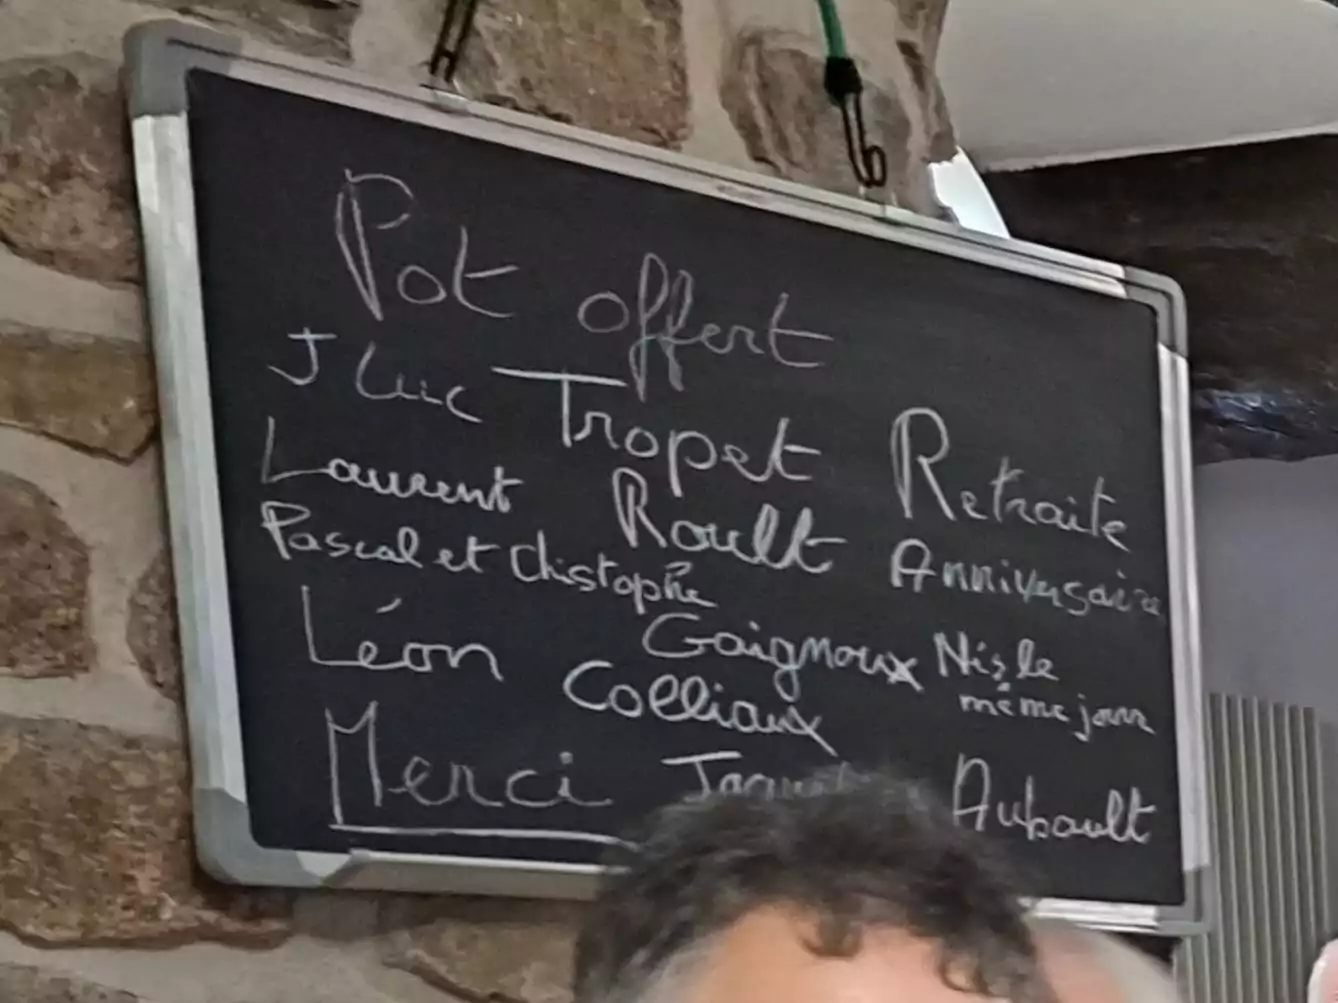 Pot offert
J Luc Tropet Retraite
Laurent Roult Anniversaire
Pascal et Christophe
Gaignoux Nés le même jour
Léon Colliaux
Merci Aubault